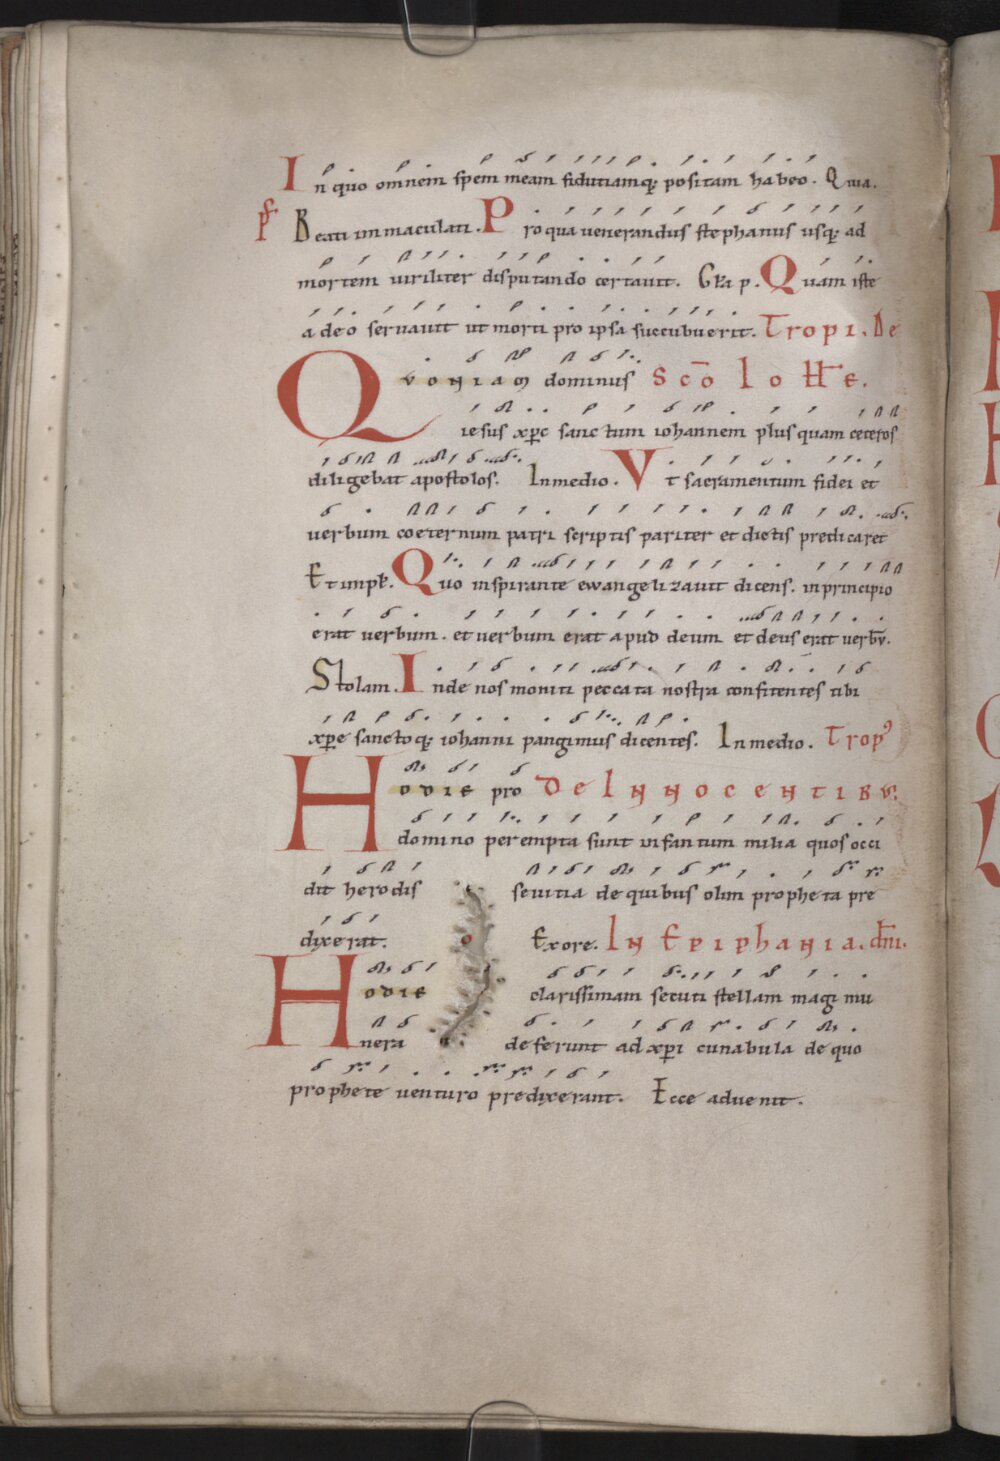 In quo omnem spem meam fidutiamq; positam habeo. Quia.
Ps Beati immaculati. Pro qua venerandus stephanus usq; ad
mortem viriliter disputando certavit. Gła p. Quam iste
adeo servavit ut morti pro ipsa succubuerit. Tropi. De
Quoniam dominus sc̄o Iohe.
iesus xp̄c sanctum iohannem plus quam ceteros
diligebat apostolos. In medio. Ut sacramentum fidei et
verbum coeternum patri scriptis pariter et dictis predicaret
Et impł. Quo inspirante ewangelizavit dicens. in principio
erat verbum. et verbum erat apud deum et deus erat verbv̄.
Stolam. Inde nos moniti peccata nostra confitentes tibi
xp̄e sanctoq; iohanni pangimus dicentes. In medio. Trop⁹
Hodie pro De Innocentibus.
domino perempta sunt infantum milia quos occi
dit herodis sevitia de quibus olim propheta pre
dixerat. Ex ore. In Epiphania. dn̄i.
Hodie clarissimam secuti stellam magi mu
nera deferunt ad xp̄i cunabula de quo
prophete venturo predixerant. Ecce advenit.